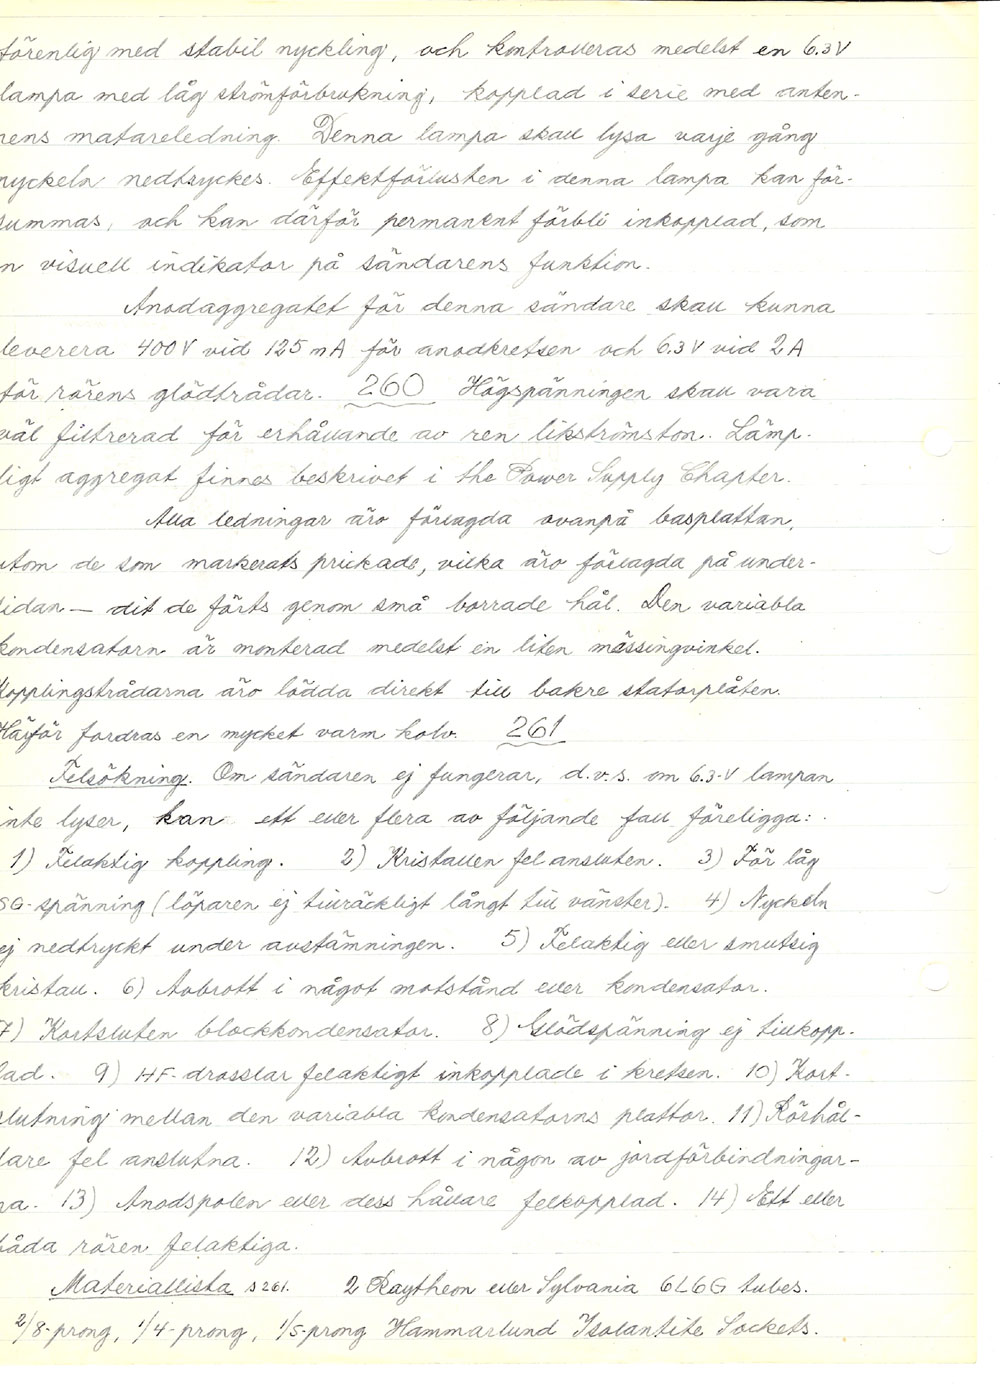 förenlig med stabil nyckling, och kontrolleras medelst en 6.3V
lampa med låg strömförbrukning, kopplad i serie med anten-
nens matareledning. Denna lampa skall lysa varje gång
nyckeln nedtryckes. Effektförlusten i denna lampa kan för-
summas, och kan därför permanent förbli inkopplad, som
n visuell indikator på sändarens funktion.
Anodaggregatet för denna sändare skall kunna
leverera 400V vid 125 mA för anodkretsen och 6.3V vid 2A
för rörens glödtrådar. 260 Högspänningen skall vara
väl filtrerad för erhållande av ren likströmston. Lämp-
ligt aggregat finnes beskrivet i the Power Supply Chapter.
Alla ledningar äro förlagda ovanpå basplattan,
utom de som markerats prickade, vilka äro förlagda på under-
sidan — dit de förts genom små borrade hål. Den variabla
kondensatorn är monterad medelst en liten mässingvinkel.
Kopplingstrådarna äro lödda direkt till bakre statorplåten.
Härför fordras en mycket varm kolv. 261
Felsökning. Om sändaren ej fungerar, d.v.s. om 6.3-V lampan
inte lyser, kan ett eller flera av följande fall föreligga:
1) Felaktig koppling. 2) Kristallen fel ansluten. 3) För låg
SG-spänning (löparen ej tillräckligt långt till vänster). 4) Nyckeln
ej nedtryckt under avstämningen. 5) Felaktig eller smutsig
kristall. 6) Avbrott i något motstånd eller kondensator.
7) Kortsluten blockkondensator. 8) Glödspänning ej tillkopp-
lad. 9) HF-drosslar felaktigt inkopplade i kretsen. 10) Kort-
slutning mellan den variabla kondensatorns plattor. 11) Rörhål-
lare fel anslutna. 12) Avbrott i någon av jordförbindningar-
na. 13) Anodspolen eller dess hållare felkopplad. 14) Ett eller
båda rören felaktiga.
Materiallista s 261. 2 Raytheon eller Sylvania 6L6G tubes.
2/8-prong, 1/4-prong, 1/5-prong Hammarlund Isolantite Sockets.